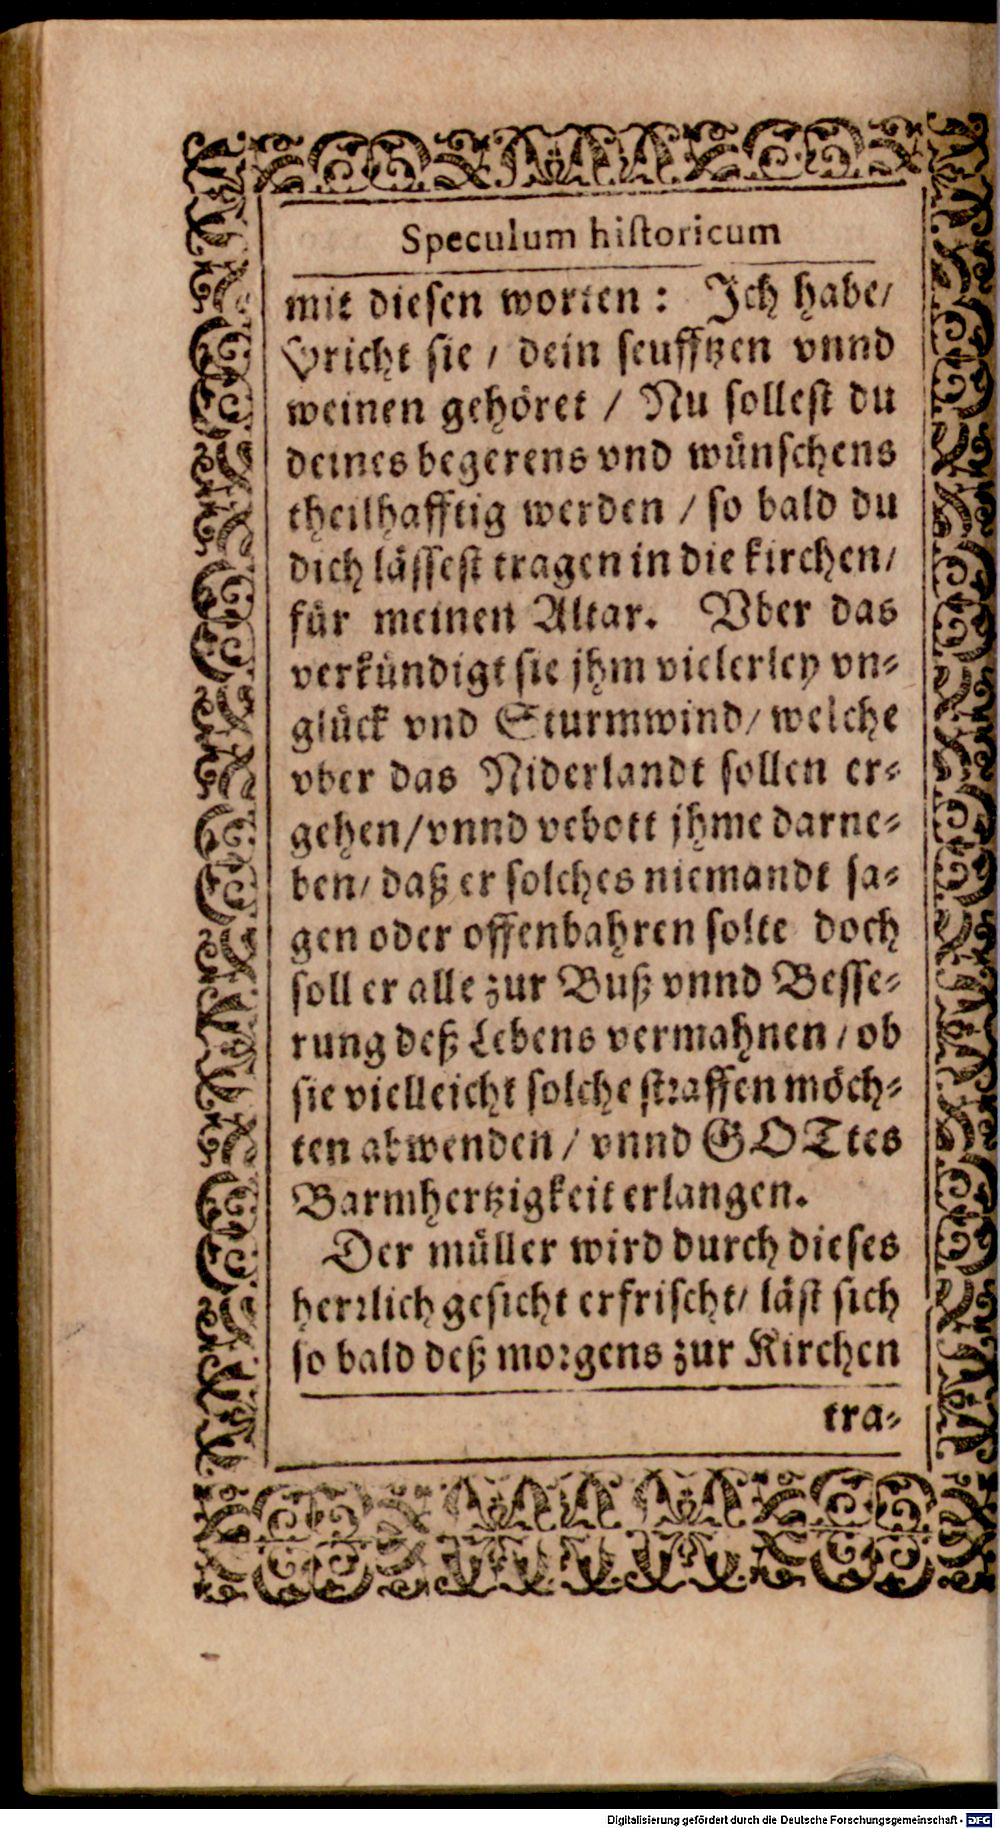 Speculum hiſtoricum
mit dieſen worten: Ich habe/
ſpricht ſie / dein ſeufftzen vnnd
weinen gehöret / Nu ſolleſt du
deines begerens vnd wünſchens
theilhafftig werden / ſo bald du
dich läſſeſt tragen in die kirchen/
für meinen Altar. Vber das
verkündigt ſie jhm vielerley vn⸗
glück vnd Sturmwind/ welche
vber das Niderlandt ſollen er⸗
gehen/vnnd vebott jhme darne⸗
ben/ daß er ſolches niemandt ſa⸗
gen oder offenbahren ſolte doch
ſoll er alle zur Buß vnnd Beſſe⸗
rung deß Lebens vermahnen / ob
ſie vielleicht ſolche ſtraffen möch⸗
ten abwenden / vnnd GOTtes
Barmhertzigkeit erlangen.
Der müller wird durch dieſes
herꝛlich geſicht erfriſcht/ läſt ſich
ſo bald deß moꝛgens zur Kirchen
tra⸗
Digitalisierung gefördert durch die Deutsche Forschungsgemeinschaft - DFG